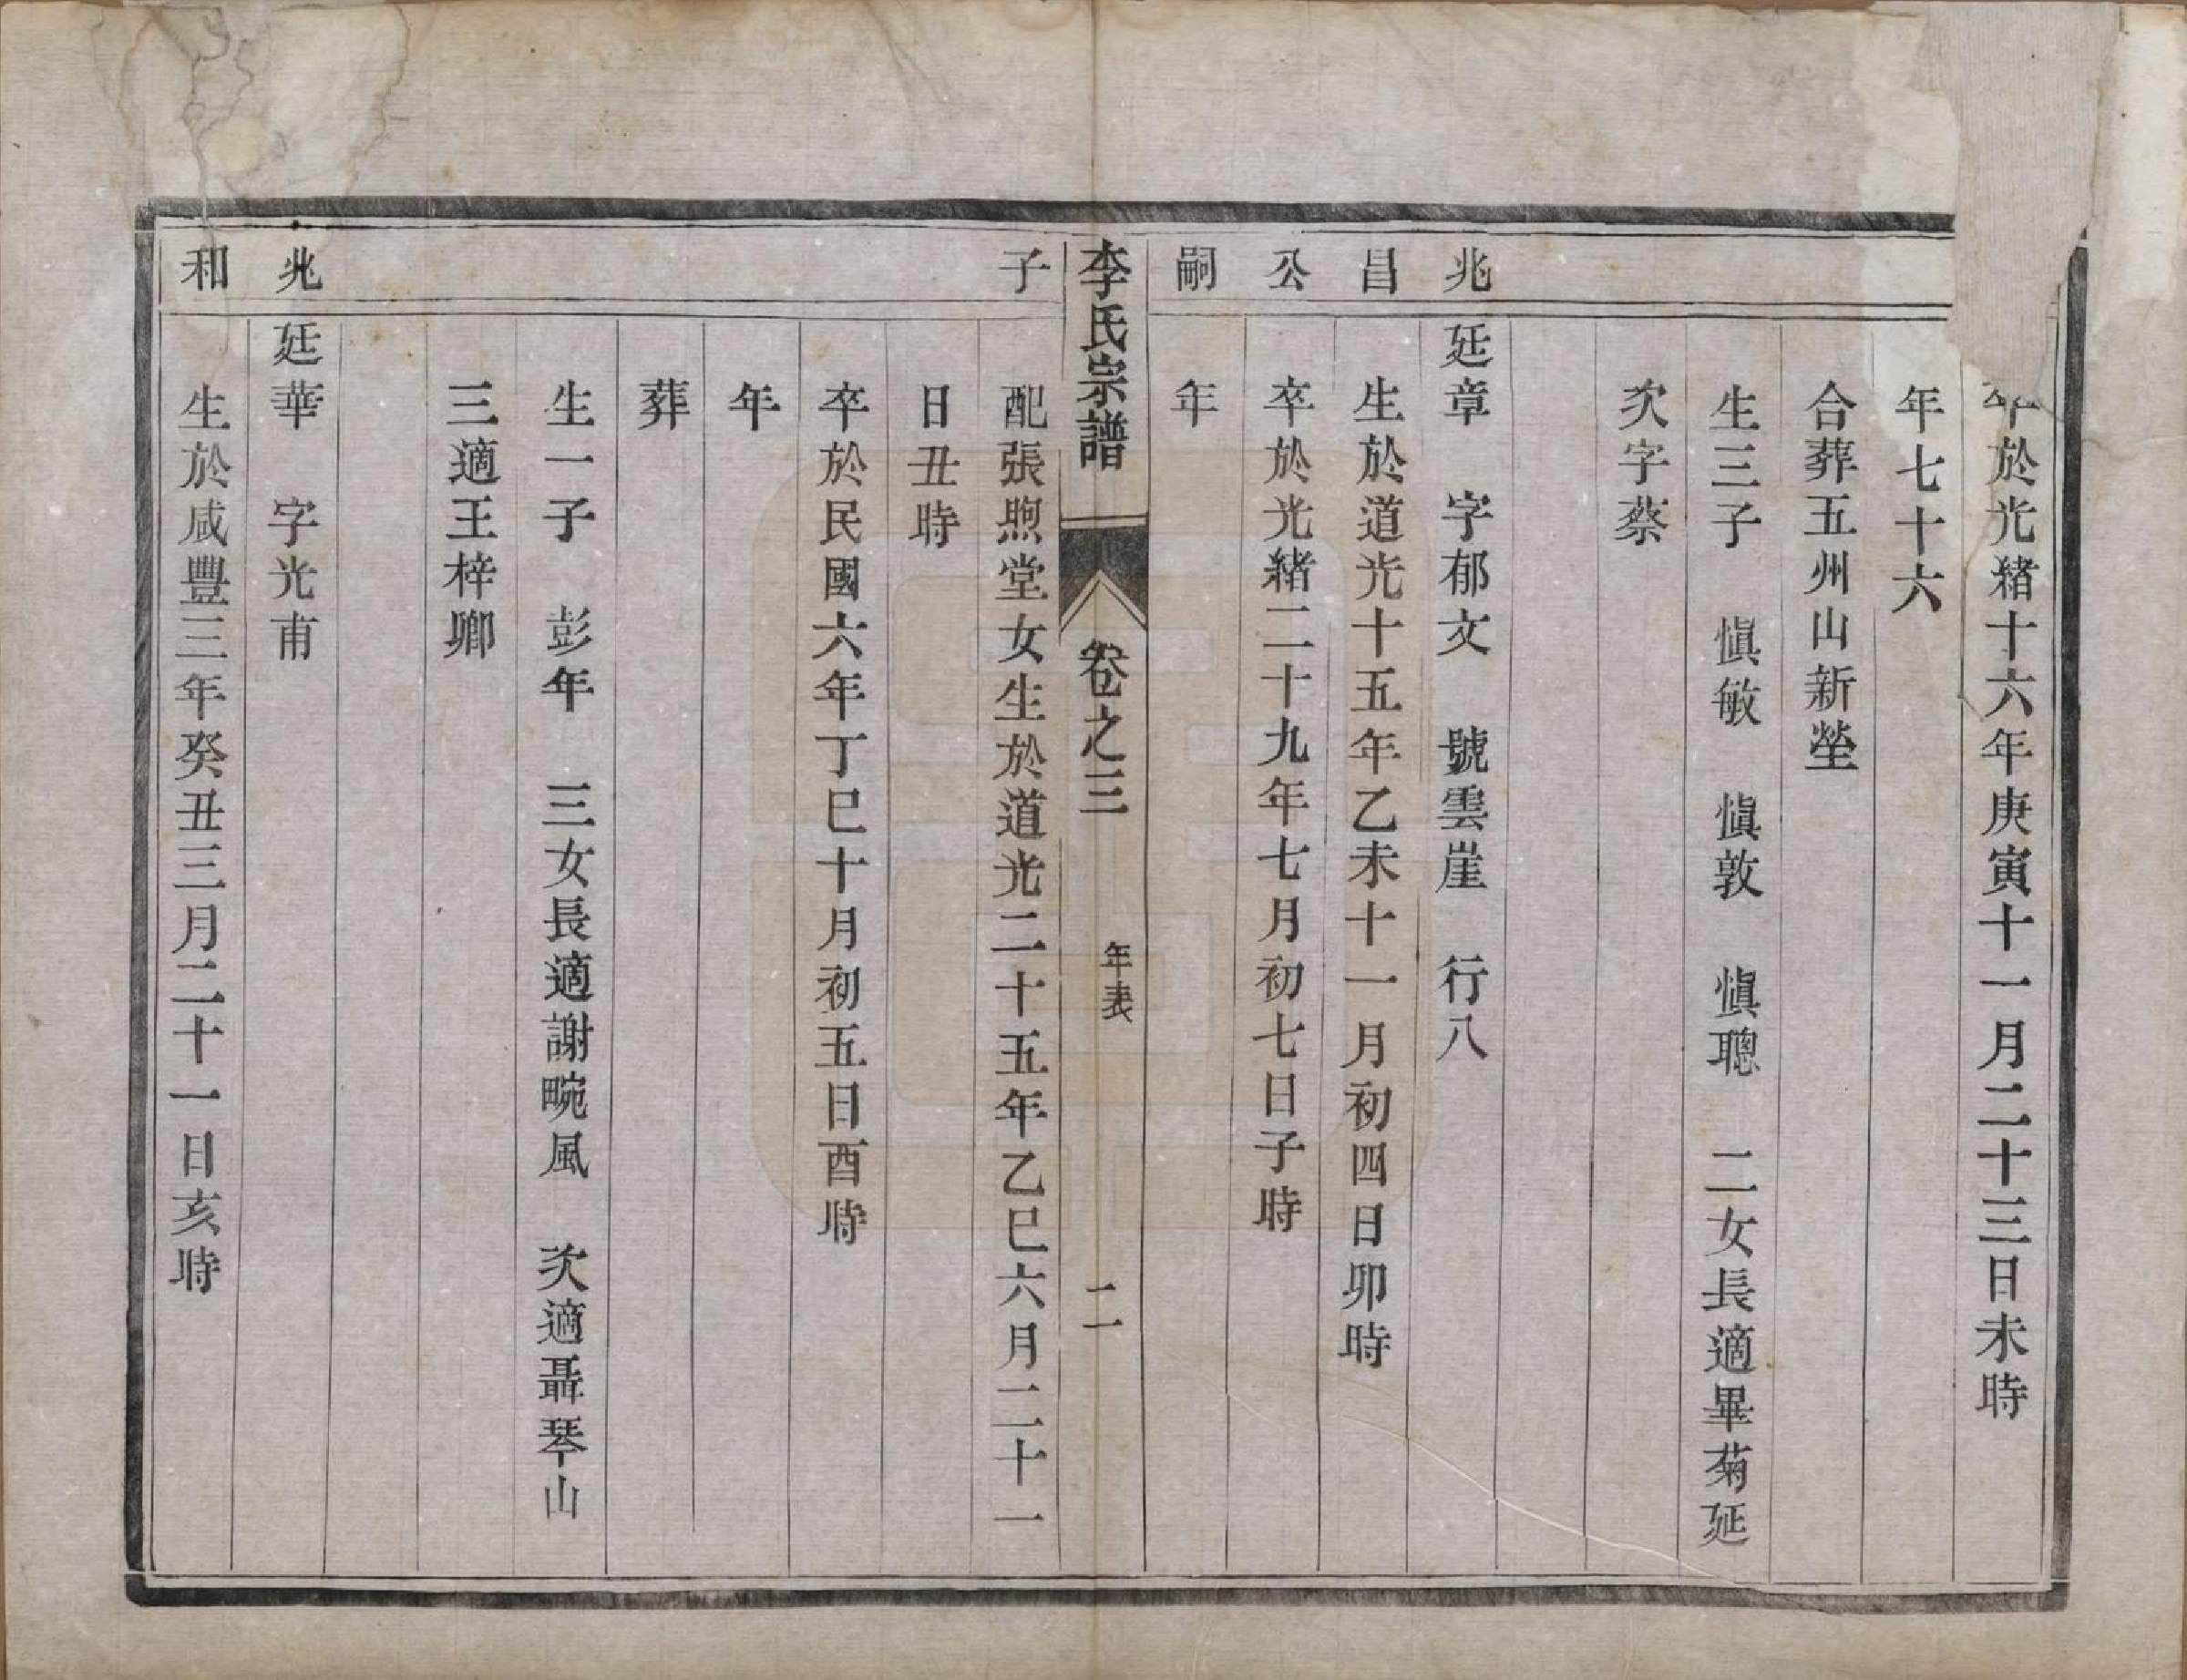 卒於光緒十六年庚寅十一月二十三日未時
年七十六
合葬五州山新塋
生三子　愼敏　愼敦　愼聰　二女長適畢菊延
次字蔡
兆昌公嗣
廷章　字郁文　號雲崖　行八
生於道光十五年乙未十一月初四日卯時
卒於光緒二十九年七月初七日子時
年
李氏宗譜　卷之三　年表　二
子
配張煦堂女生於道光二十五年乙巳六月二十一
日丑時
卒於民國六年丁巳十月初五日酉時
年
葬
生一子　彭年　三女長適謝畹風　次適聶琴山
三適王梓卿
兆和
廷華　字光甫
生於咸豐三年癸丑三月二十一日亥時